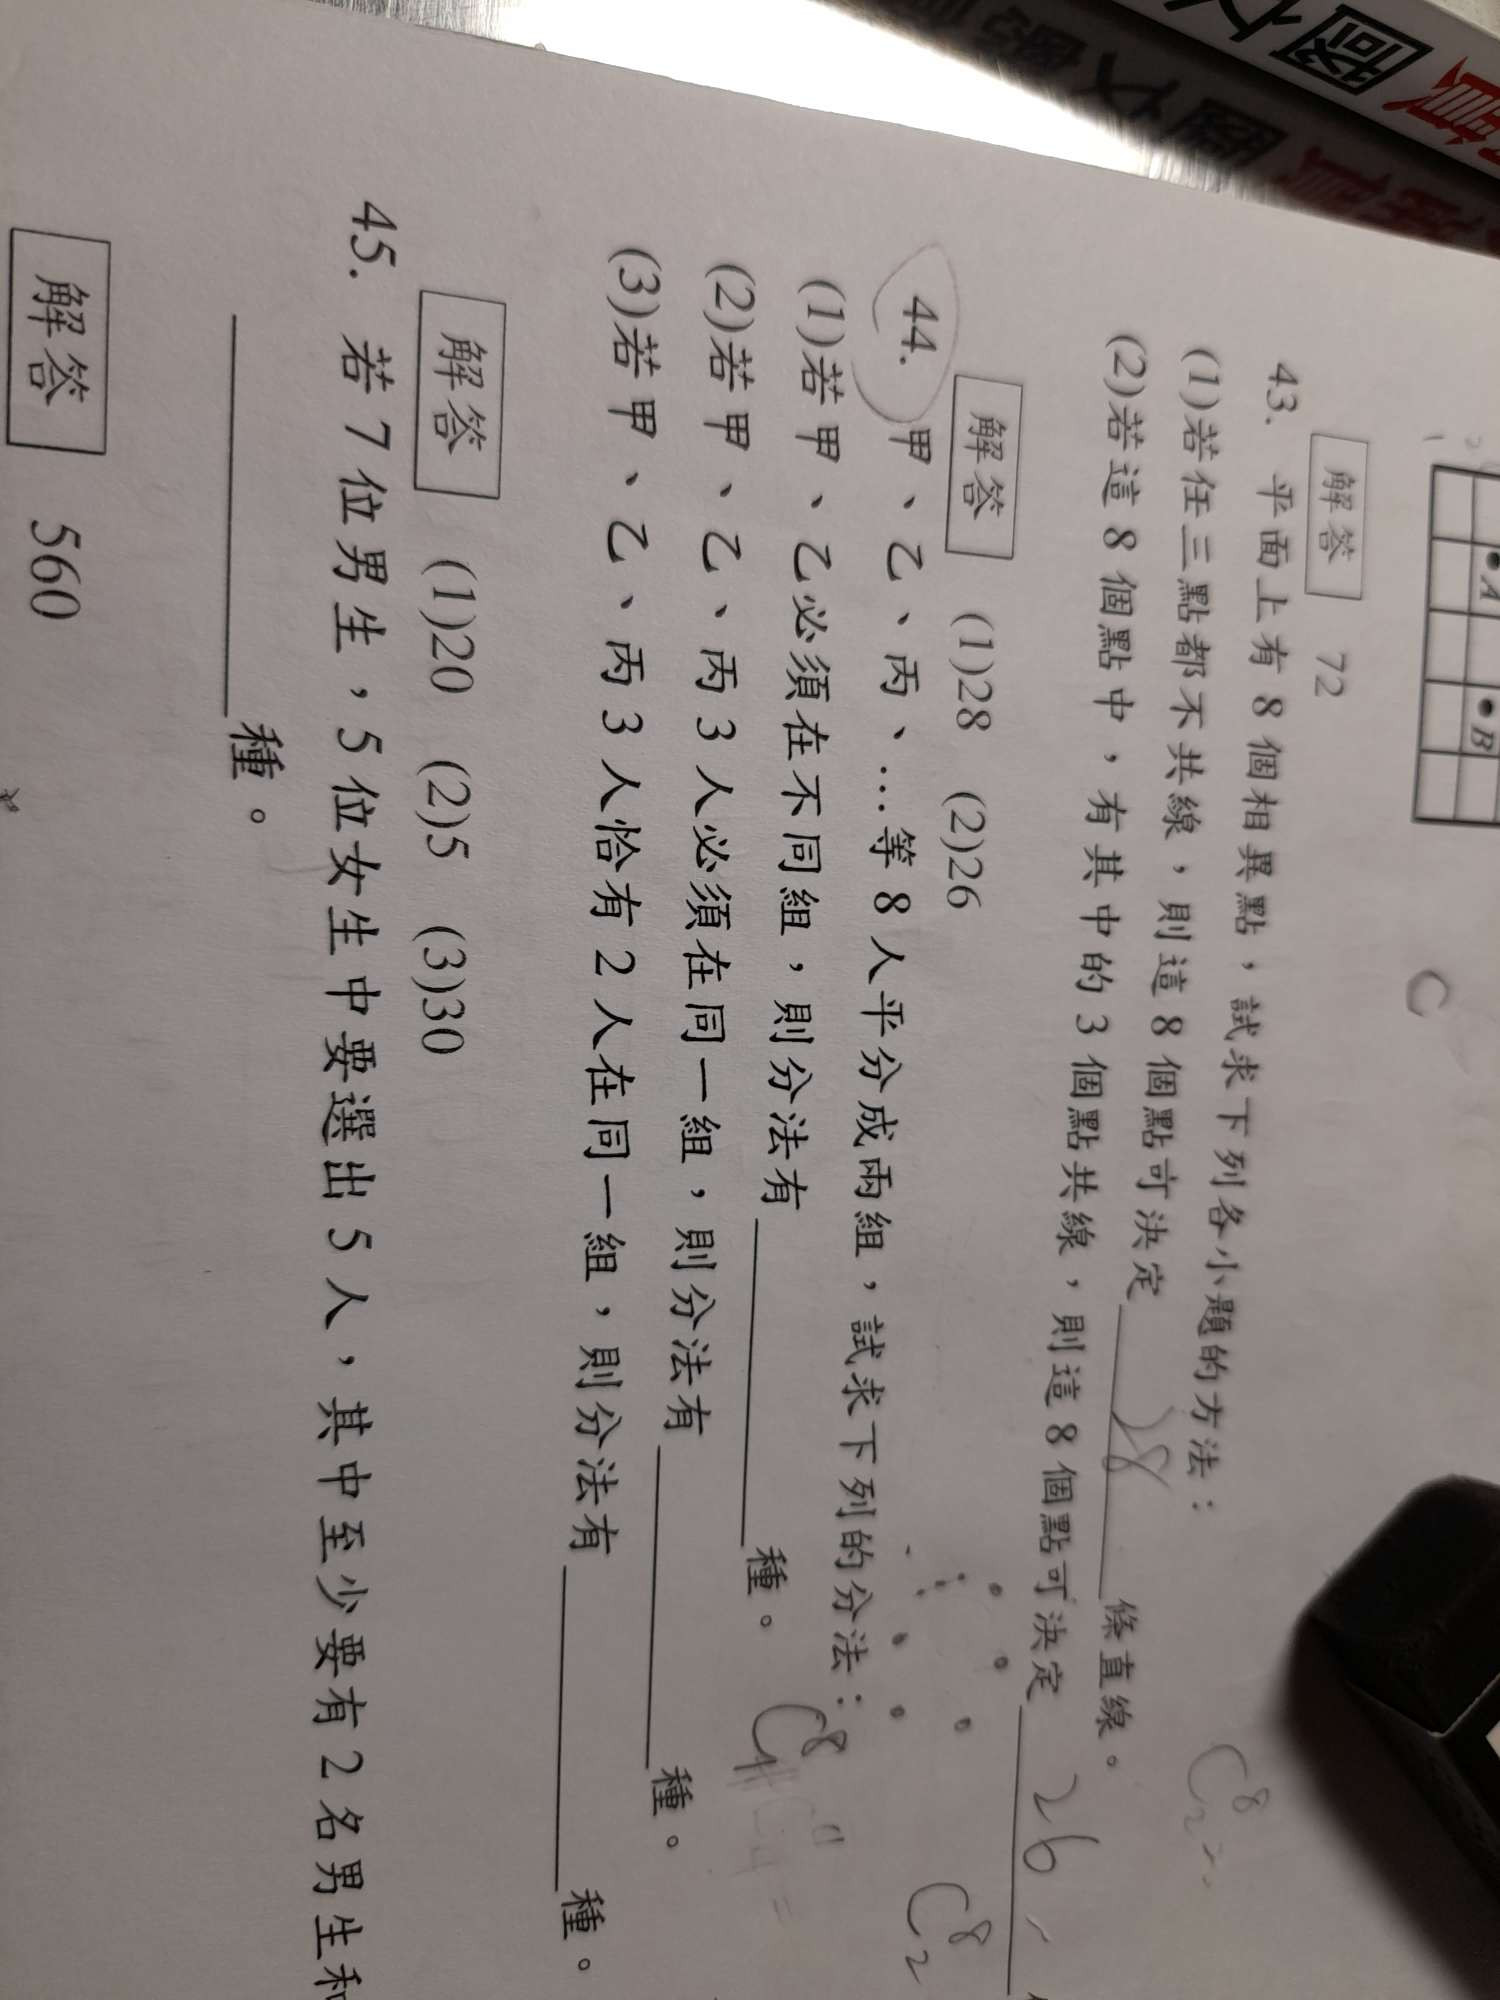 A
B
C
解答 72
43. 平面上有 8 個相異點，試求下列各小題的方法：
(1)若任三點都不共線，則這 8 個點可決定 28 條直線。
(2)若這 8 個點中，有其中的 3 個點共線，則這 8 個點可決定 26
解答 (1)28 (2)26
44. 甲、乙、丙、…等 8 人平分成兩組，試求下列的分法：
(1)若甲、乙必須在不同組，則分法有 種。
(2)若甲、乙、丙 3 人必須在同一組，則分法有 種。
(3)若甲、乙、丙 3 人恰有 2 人在同一組，則分法有 種。
解答 (1)20 (2)5 (3)30
45. 若 7 位男生，5 位女生中要選出 5 人，其中至少要有 2 名男生和
種。
解答 560